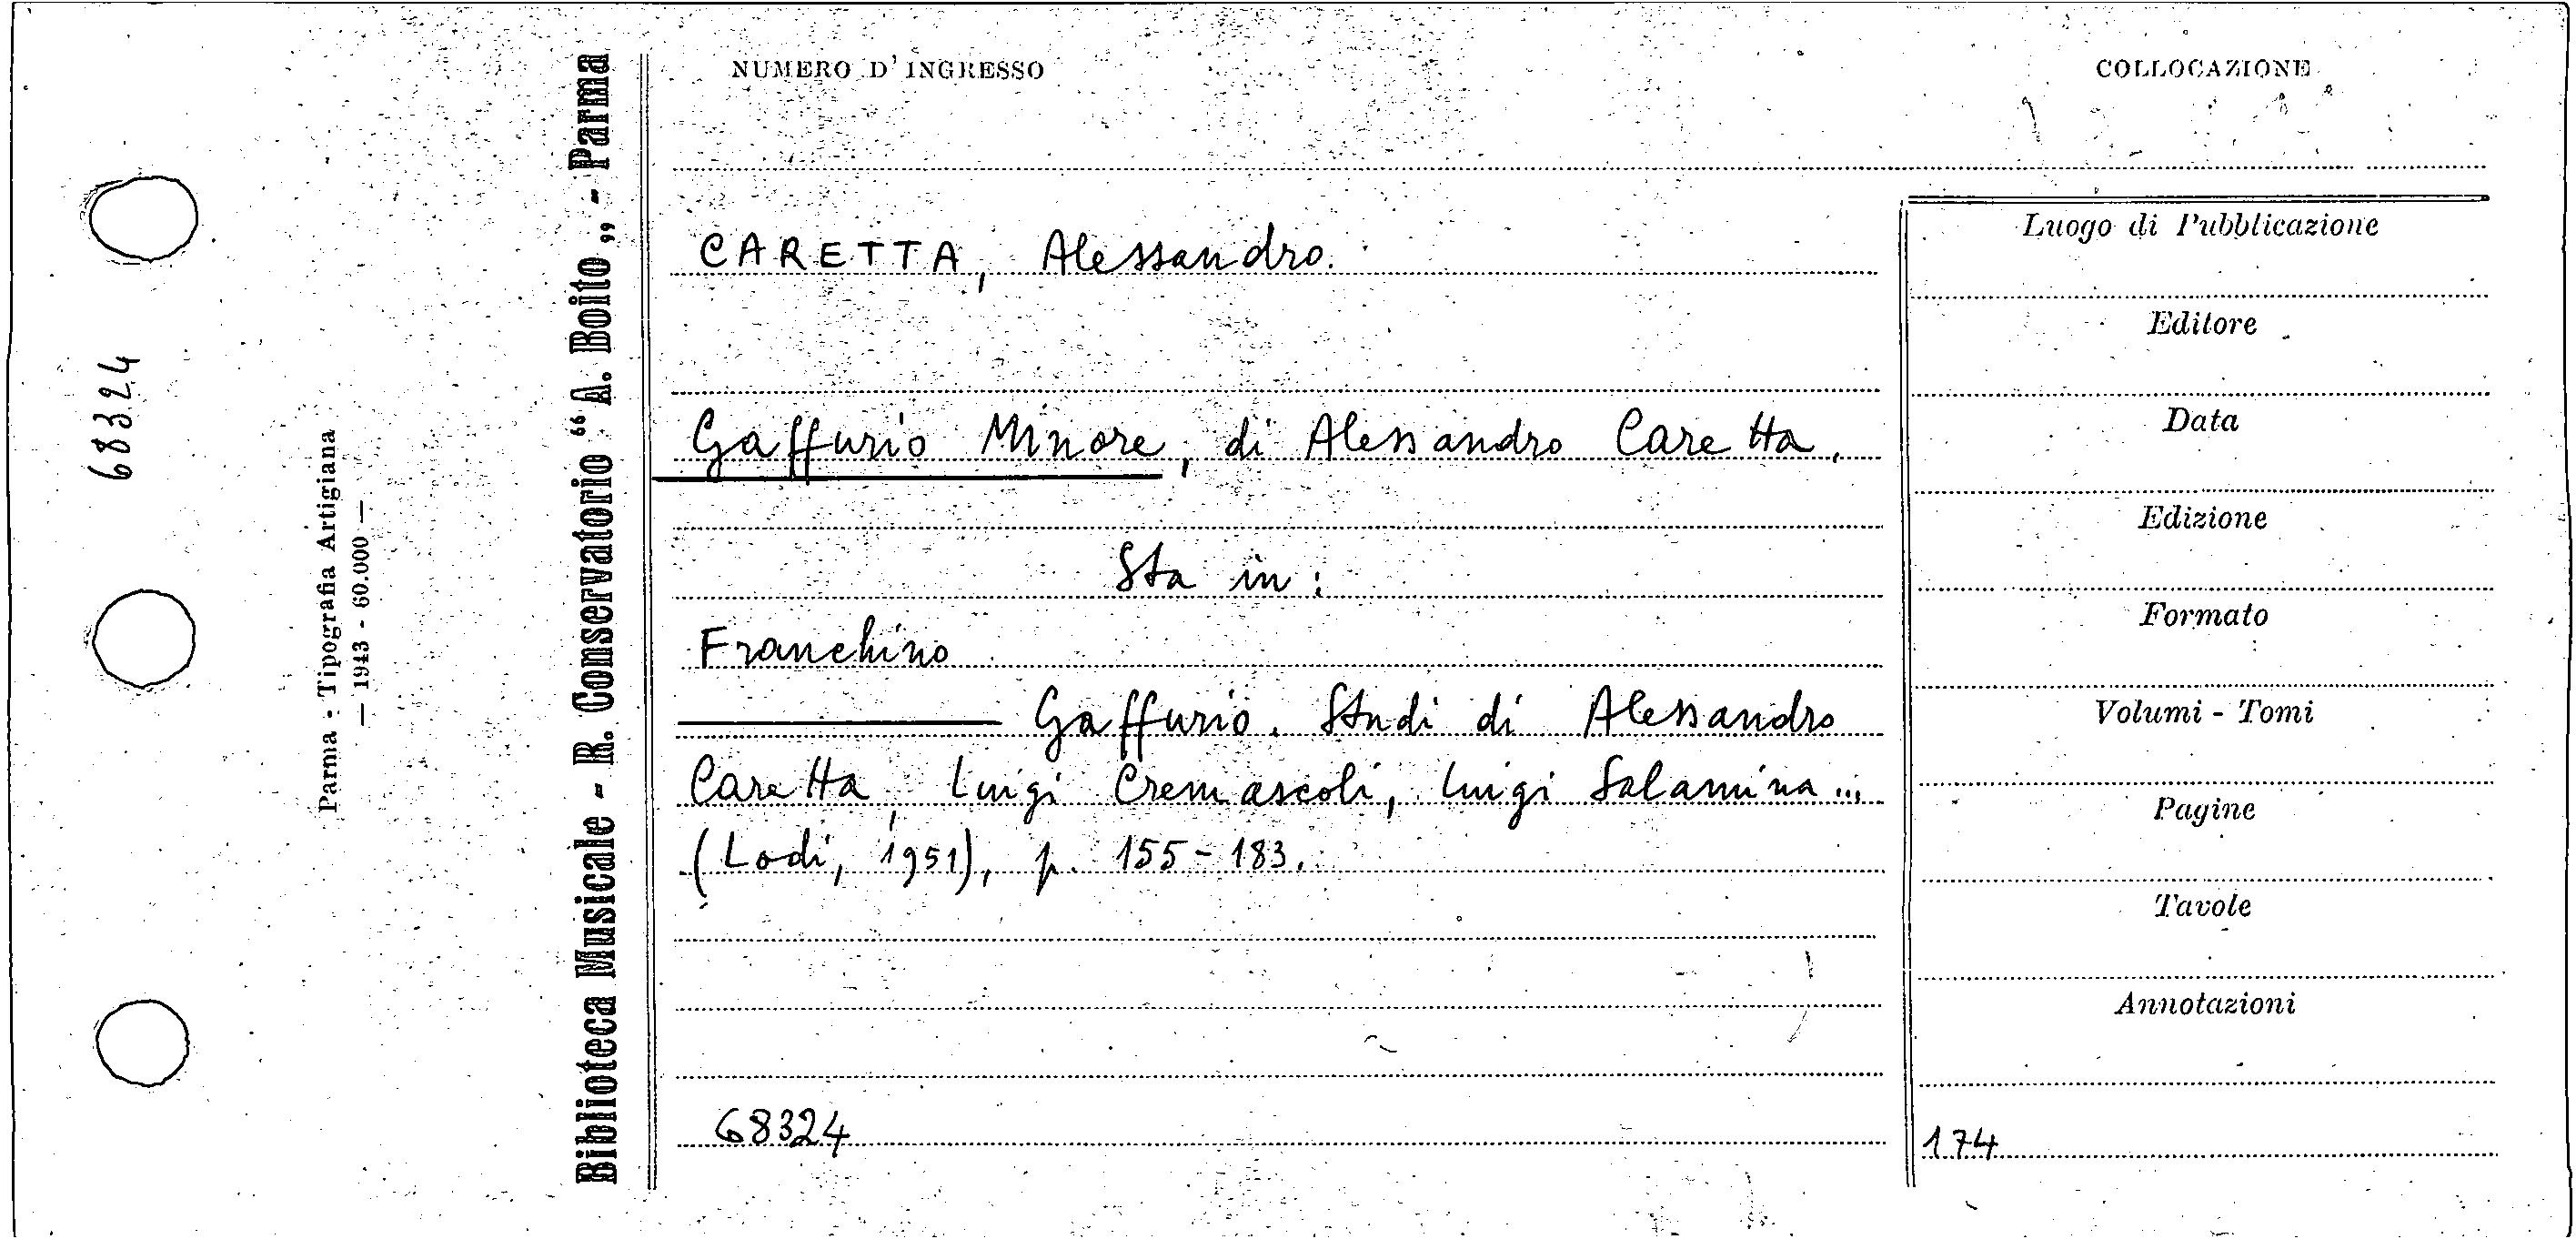 68324
Parma - Tipografia Artigiana
— 1943 - 60.000 —
Biblioteca Musicale - R. Conservatorio “A. Boito„ - Parma
NUMERO D'INGRESSO
COLLOCAZIONE
CARETTA, Alessandro.
Gaffurio Minore, di Alessandro Caretta.
Sta in:
Franchino
Gaffurio. Studi di Alessandro
Caretta, Luigi Cremascoli, Luigi Salamina ...
(Lodi, 1951), p. 155-183.
68324
Luogo di Pubblicazione
Editore
Data
Edizione
Formato
Volumi - Tomi
Pagine
Tavole
Annotazioni
174